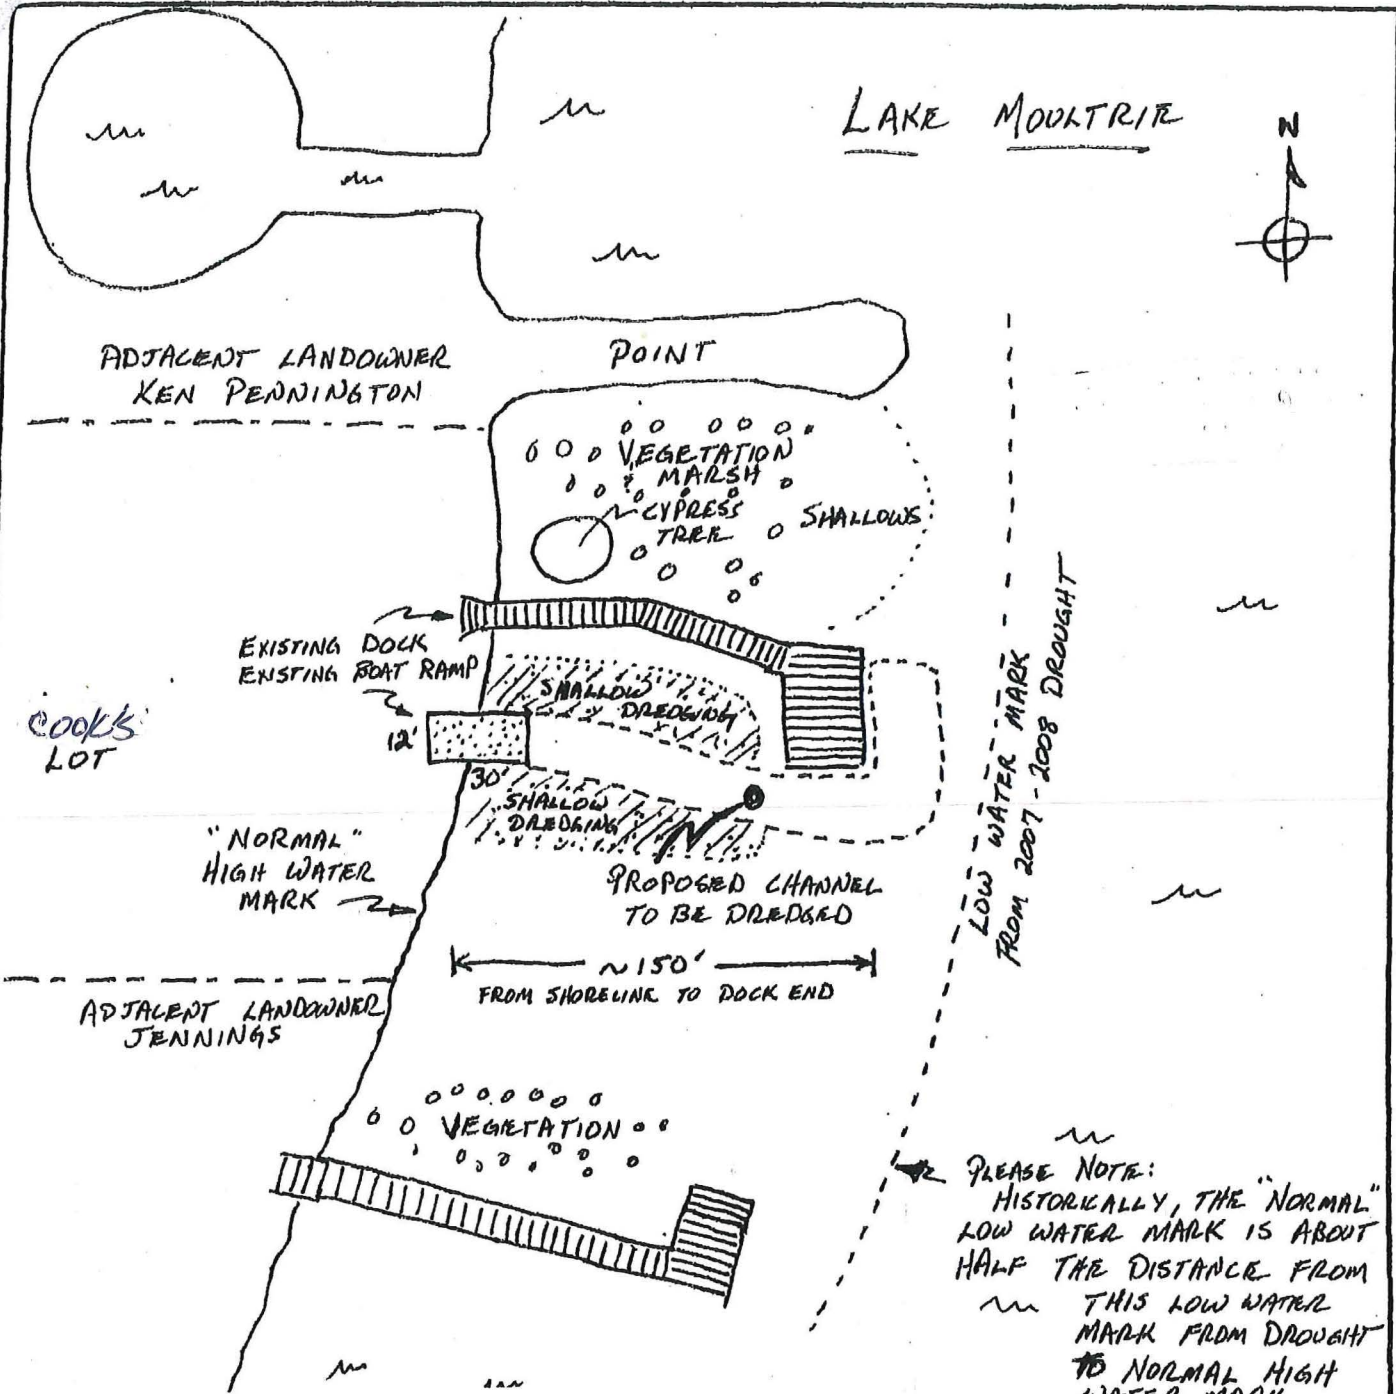 LAKE MOULTRIE
N
ADJACENT LANDOWNER
KEN PENNINGTON
POINT
VEGETATION
MARSH
CYPRESS
TREE
SHALLOWS
EXISTING DOCK
EXISTING BOAT RAMP
SHALLOW
DREDGING
COOKS
LOT
12'
30'
SHALLOW
DREDGING
"NORMAL"
HIGH WATER
MARK
PROPOSED CHANNEL
TO BE DREDGED
LOW WATER MARK
FROM 2007-2008 DROUGHT
~150'
FROM SHORELINE TO DOCK END
ADJACENT LANDOWNER
JENNINGS
VEGETATION
PLEASE NOTE:
HISTORICALLY, THE "NORMAL"
LOW WATER MARK IS ABOUT
HALF THE DISTANCE FROM
THIS LOW WATER
MARK FROM DROUGHT
TO NORMAL HIGH
WATER MARK